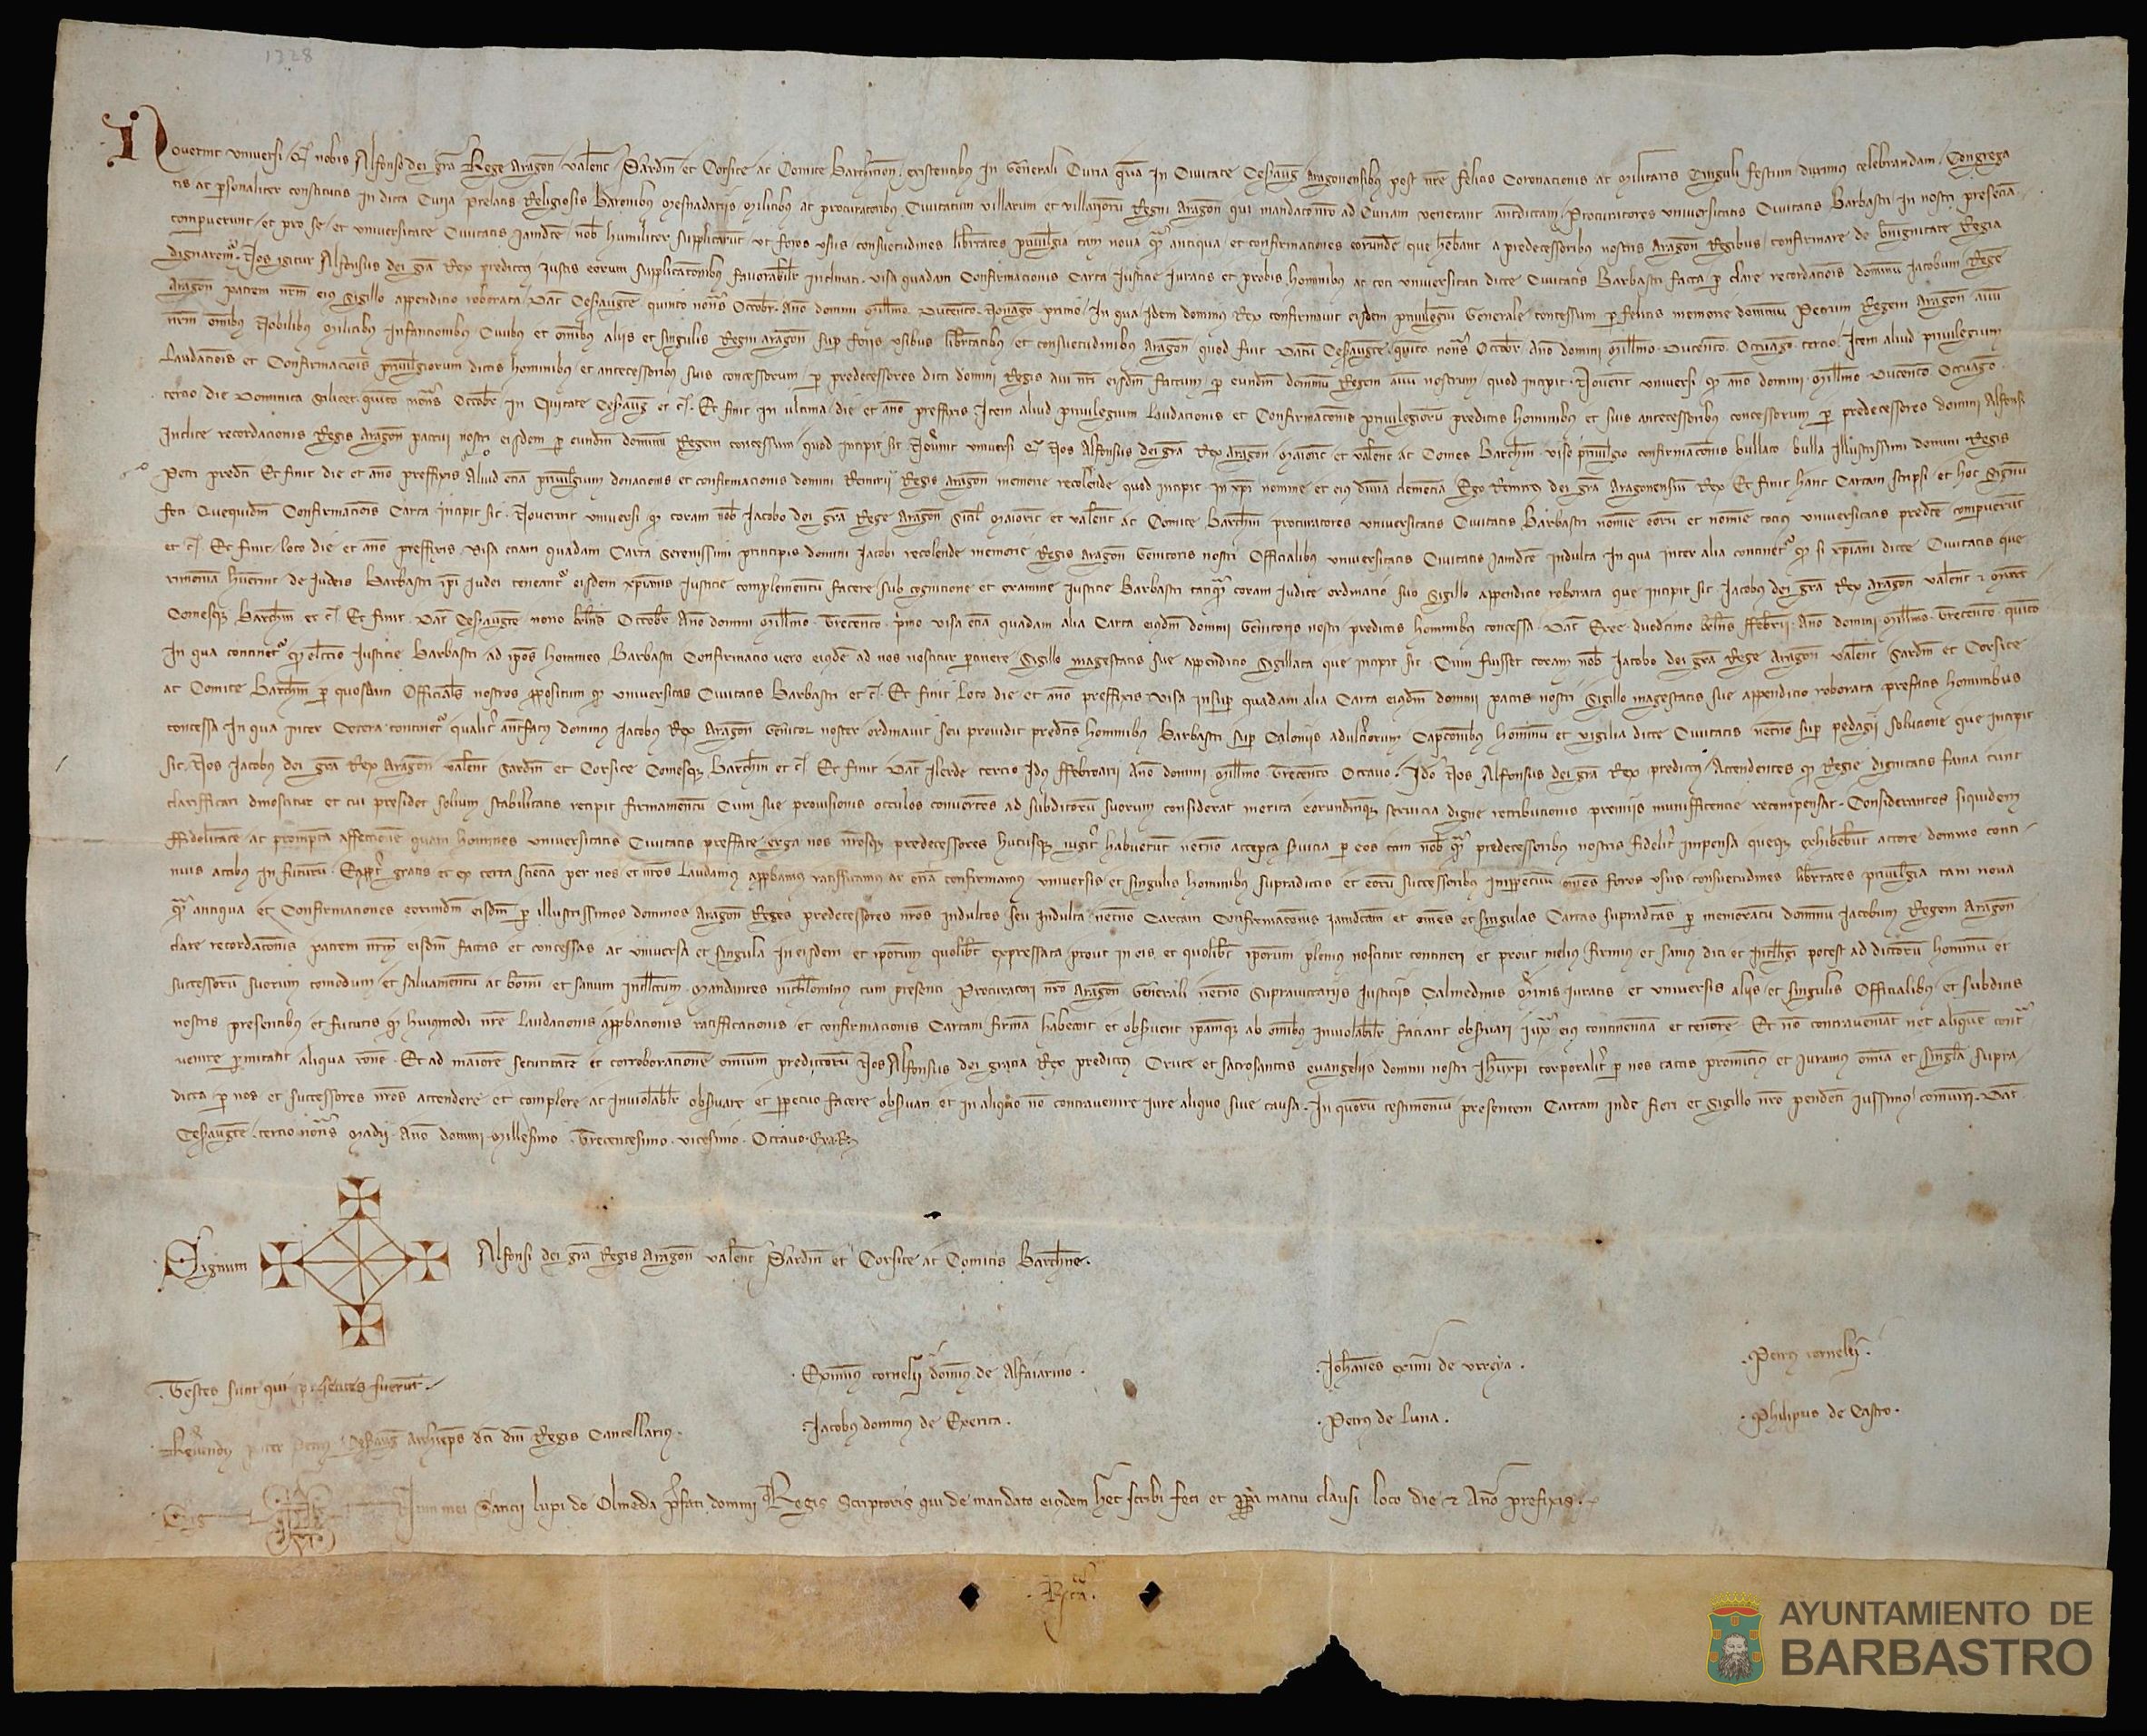 1328
Noverint universi Qd nobis Alfonso dei gr̃a Rege Aragoñ valenc̃ Sardiñ et Corsice ac Comite Barchinoñ existentibus in Generali Curia quã in Civitate Cesaraug̃ Aragonensibus post nr̃e felicis Coronacionis ac militaris Cinguli festum duximus celebrandam Congrega
tis ac p̱sonaliter constitutis in dicta Curia Prelatis Religiosis Baronibus mesnadariis militibus ac procuratoribus Civitatum villarum et villariorũ Regni Aragoñ qui mandato nr̃o ad Curiam venerant ant̃dictam Procuratores universitatis Civitatis Barbastri in nostri presẽcia
compuerunt et pro se et universitate Civitatis Jamdc̃e nob̃ humiliter supplicarũt ut foros usus consuetudines libertates privilegia tam nova qm̃ antiqua et confirmaciones eorundẽ que hẽbant a predecessoribus nostris Aragoñ Regibus confirmare de benignitate Regia
dignaremꝰ Nos igitur Alfonsus dei gr̃a Rex predictꝰ Justis eorum supplicac̃onibus favorabilr̃ inclinati visa quadam Confirmacionis Carta Justicie Juratis et probis hominibus ac toti universitati dicte Civitatis Barbastri facta p̱ clare recordaciõis dominũ Jacobum Regẽ
Aragoñ patrem nr̃m eiꝰ sigillo appendicio roborata Dat̃ Cesaraugustẽ quinto nonas Octobr̃ Ano domini millm̃o Ducentõ Nonag̃o primo In qua idem dominus Rex confirmavit eisdem privilegiũ Generale concessum p̱ felicis memorie dominũ Petrum Regem Aragoñ avũ
nr̃m om̃ibus Nobilibus militibus Infancionibus Civibus et om̃ibus aliis et singulis Regni Aragoñ sup̱ foriis usibus libertatibus et consuetudinibus Aragoñ quod fuit Datũ Cesaraugustẽ quinto nonas Octobr̃ Ano domini millm̃o Ducentõ Octuag̃o tercio Item aliud privilegium
laudaciõis et Confirmaciõis privilegiorum dictis hominibus et antecessoribus suis concessorum p̱ predecessores dicti domini Regis avi nr̃i eisdm̃ factum p̱ eundm̃ dominũ Regem avũ nostrum quod incipit Noverint universi qd ano domini millm̃o Ducentõ Octuag̃o
tercio die Dominica scilicet quinto nonas Octobr̃ in Civitate Cesaraug̃ et c̃ Et finit in ultima die et ano preffixis Item aliud privilegium laudacionis et Confirmac̃onis privilegiorũ predictis hominibus et suis antecessoribus concessorum p̱ predecessores domini Alfonsi
Inclite recordacionis Regis Aragoñ patrui nostri eisdem p̱ eundm̃ dominũ Regem concessum quod incipit sic Noverint universi Qd Nos Alfonsus dei gr̃a Rex Aragoñ Maioric̃ et valenc̃ ac Comes Barchin̄ viso privilegio confirmac̃onis bullato bulla Illustrissimi domini Regis
Petri predc̃i Et finit die et ano preffixis Aliud ecia privilegium donacionis et confirmacionis domini Remirii Regis Aragoñ memorie recolende quod incipit In xp̃i nomine et eiꝰ divina clemencia Ego Remirꝰ dei gr̃a Aragonensiũ Rex Et finit hanc Cartam scripsi et hoc Signũ
feci Quequidm̃ Confirmaciõis Carta incipit sic Noverint universi qd coram nob̃ Jacobo dei gr̃a Rege Aragoñ Sicil̃ Maioric̃ et valenc̃ ac Comite Barchin̄ procuratores universitatis Civitatis Barbastri nomĩe eorũ et nomĩe tocius universitatis predc̃e compuerũt
et c̃ Et finit loco die et ano preffixis visa etiam quadam Carta Serenissimi principis domini Jacobi recolende memorie Regis Aragoñ Genitoris nostri Officialibus universitatis Civitatis Jamdc̃e indulta In qua inter alia continetꝰ qd si xp̃iani dicte Civitatis que
rimoniã hũerint de Iudeis Barbastri ip̃i Iudei teneantꝰ eisdem xp̃ianis Justicie complementũ facere sub cognicione et examine Justicie Barbastri tanqm̃ coram Judice ordinario suo sigillo appendicio roborata que incipit sic Jacobus dei gr̃a Rex Aragoñ valenc̃ et murc̃
Comesqz Barchin̄ et c̃ Et finit Dat̃ Cesaraugustẽ nono klñs Octobr̃ Ano domini millm̃o Trecentõ p̃mo visa ecia quadam alia Carta eiꝰdm̃ domini Genitoris nostri predictis hominibus concessa Dat̃ Exee duodecimo klñs ffebr̃ii Ano domini millm̃o Trecentõ quinto
In qua continetꝰ qd elc̃cio Justicie Barbastri ad ip̃os homines Barbastri Confirmacio vero eiꝰdẽ ad nos noscitur p̱tinere sigillo magestatis sue appendicio sigillata que incipit sic Cum fuisset coram nob̃ Jacobo dei gr̃a Rege Aragoñ valenc̃ Sardiñ et Corsice
ac Comite Barchin̄ p̱ quosdam Officiales nostros p̱positum qd universitas Civitatis Barbastri et c̃ Et finit loco die et ano preffixis visa insup̱ quadam alia Carta eiꝰdm̃ domini patris nostri sigillo magestatis sue appendicio roborata prefatis hominibus
concessa In qua inter Cetera continetꝰ qualit̃ ant̃fatꝰ dominus Jacobus Rex Aragoñ Genitor noster ordinavit seu providit predc̃is hominibus Barbastri sup̱ Caloniis adult̃orum Capc̃onibus hominũ et vigilia dicte Civitatis necnõ sup̱ pedagii solucione que incipit
sic Nos Jacobus dei gr̃a Rex Aragoñ valenc̃ Sardiñ et Corsice Comesqz Barchin̄ et c̃ Et finit Dat̃ Ilerde tercio Idꝰ ffebroarii Ano domini millm̃o Trecentõ Octavo Ido Nos Alfonsus dei gr̃a Rex predictꝰ Attendentes qd Regie dignitatis fama tunc
clarifficari dinoscitur et cui presidet solium stabilitatis recipit firmamentũ Cum sue provisionis occulos convertẽs ad subditorũ suorum considerat merita eorundmqz servicia digne retribucionis premiis munifficencie recompensat Considerantes siquidem
ffidelitatẽ ac promptã affectionẽ quam homines universitatis Civitatis preffate erga nos nr̃osqz predecessores hucusqz iugit̃ habuerũt necnõ accepta s̱vicia p̱ eos tam nob̃ qm̃ predecessoribus nostris fidelit̃ impensa queqz exhibebũt actore domino conti
nuis actibus in futurũ Eapp̃t gratis et ex certa scientia per nos et nr̃os laudamꝰ app̱bamus ratifficamus ac ecia confirmamus universis et singulis hominibus supradictis et eorũ successoribus inp̱petuũ om̃es foros usus consuetudines libertates privilegia tam nova
qm̃ antiqua et Confirmaciones eorundm̃ eisdm̃ p̱ illustrissimos dominos Aragoñ Reges predecessores nr̃os indultos seu indulta necnõ Cartam Confirmac̃onis Jamdc̃am et om̃es et singulas Cartas supradc̃as p̱ memoratũ dominũ Jacobum Regem Aragoñ
clare recordac̃onis patrem nr̃m eisdm̃ factas et concessas ac universa et singula in eisdem et ip̃orum quolibt̃ expressata prout in eis et quolibt̃ ip̃orum plenius noscitur contineri et prout melius firmius et sanius dici et intelligi potest ad dictorũ hominũ et
successorũ suorum comodum et salvamentũ ac bonũ et sanum intellc̃tum Mandantes nichilominus cum presenti Procuratori nr̃o Aragoñ Generali necnõ Supraiunctariis Justiciis Calmedinis Merinis Juratis et universis aliis et singulis Officialibus et subditis
nostris presentibus et futuris qd huiꝰmodi nr̃e laudacionis app̱bacionis ratifficacionis et confirmacionis Cartam firmã habeant et obs̱vent ip̃amqz ab om̃ibus inviolabilr̃ faciant obs̱vari iuxa eiꝰ continenciã et tenorẽ Et nõ contraveniãt nec aliquẽ cont̃
venire p̱mitatit aliqua rõne Et ad maiorẽ securitatẽ et corroborationẽ omnium predictorũ Nos Alfonsus dei gracia Rex predictus Cruce et sacrosanctis evangeliis domini nostri Jhũxp̃i corporalit̃ p̱ nos tactis promittimꝰ et iuramꝰ om̃ia et singula supra
dicta p̱ nos et successores nr̃os attendere et complere ac inviolabilr̃ obs̱vare et p̱petuo facere obs̱vari et in aliquo nõ contravenire iure aliquo sive causa In quorũ testimoniũ presentem Cartam inde fieri et sigillo nr̃o pendenti iussimus comuniri Dat̃
Cesaraugustẽ tercio nonas Madii Ano domini millesimo Trecentesimo vicesimo Octavo
Signum Alfonsi dei gr̃a Regis Aragoñ valenc̃ Sardiñ et Corsice ac Comitis Barchñe
Testes sunt qui presentes fuerũt
Eximinꝰ cornelii dominꝰ de Alfaiarino
Johanes eximii de urreya
Petrꝰ cornelii
Rever̃ndꝰ pater Petrꝰ Cesaraug̃ archiep̃s dc̃i dñi Regis Cancellariꝰ
Jacobꝰ dominus de Exerica
Petrꝰ de luna
Philipus de Castro
Sig num mei Sancii lupi de Olmeda p̃fati domini Regis Scriptoris qui de mandato eiꝰdem hec scribi feci et p̱p̃a manu clausi loco die et Ano prefixis
Rta
AYUNTAMIENTO DE
BARBASTRO